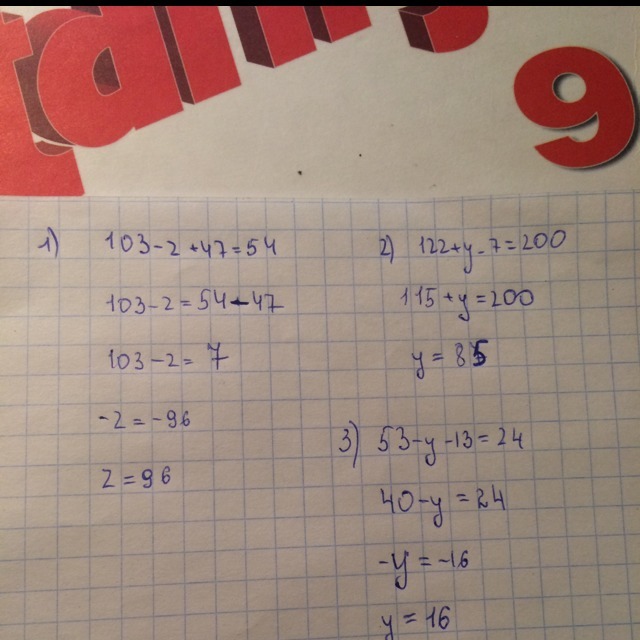 9
1) 103-2+47=54
103-2=54-47
103-2=7
-2=-96
2=96
2) 122+y-7=200
115+y=200
y=85
3) 53-y-13=24
40-y=24
-y=-16
y=16